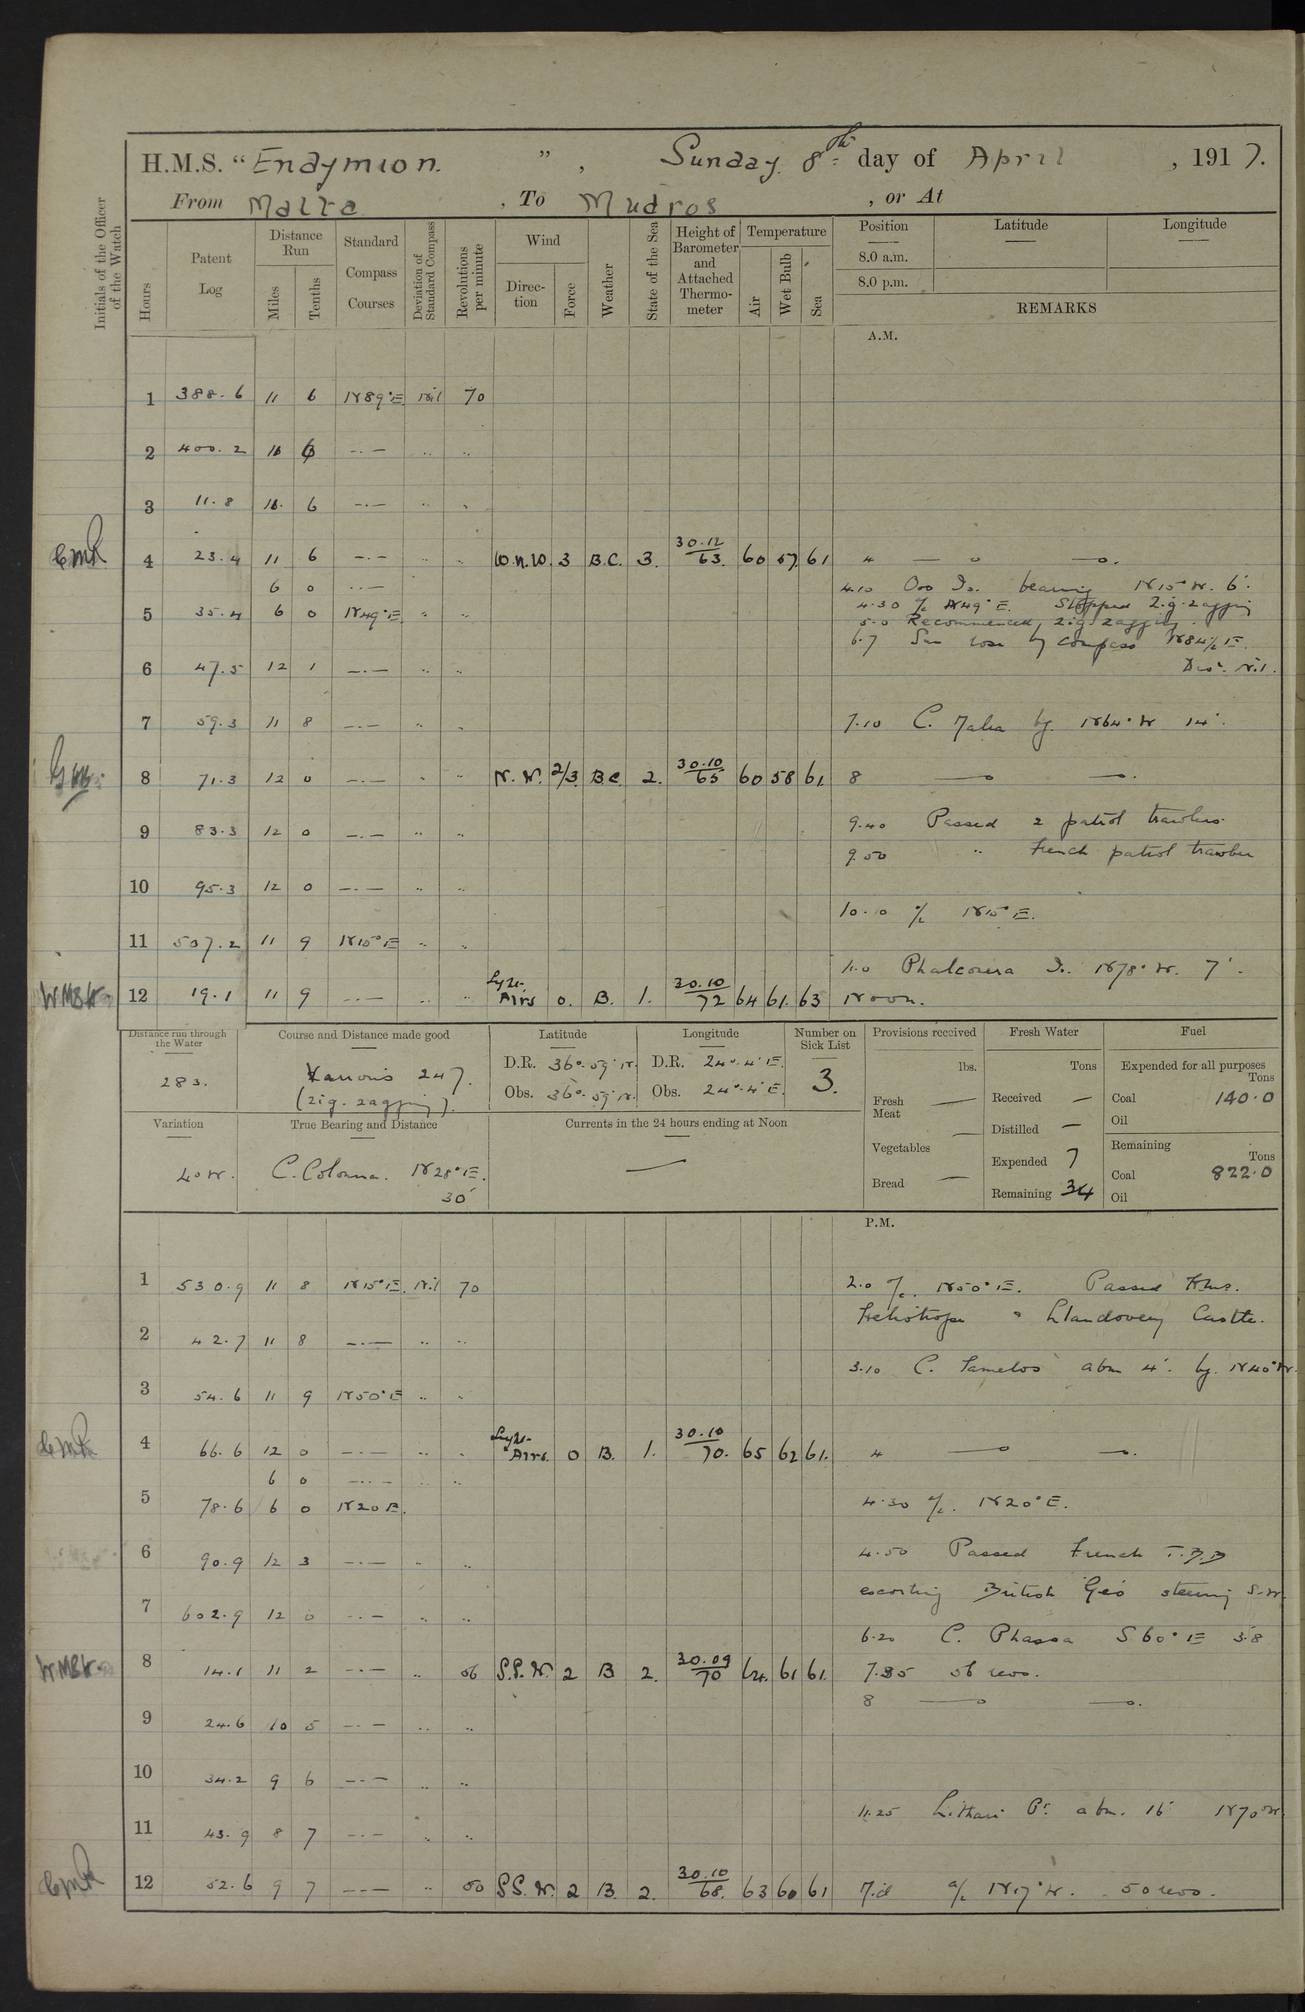 H.M.S. “Endymion. ”, Sunday 8th day of April, 1917.
From Malta, To Mudros, or At
Initials of the Officer of the Watch
Hours
Patent Log
Distance Run
Miles
Tenths
Standard Compass Courses
Deviation of Standard Compass
Revolutions per minute
Wind
Direction
Force
Weather
State of the Sea
Height of Barometer and Attached Thermometer
Temperature
Air
Wet Bulb
Sea
Position
8.0 a.m.
8.0 p.m.
Latitude
Longitude
REMARKS
A.M.
1 388.6 11 6 N89°E Nil 70
2 400.2 11 6 —.— .. ..
3 11.8 11. 6 —.— .. ..
4 23.4 11 6 —.— .. .. W.N.W. 3 B.C. 3. 30.12/63. 60 57 61 4 —o —o.
6 0 ..—
4.10 Ovo Is. bearing N15°W. 6'.
5 35.4 6 0 N49°E. .. ..
4.30 a/c N49°E. Stopped Zig-zagging
5.0 Recommenced zig-zagging.
6.7 Sun rose by compass N84½E.
Devn. Nil.
6 47.5 12 1 —.— .. ..
7 59.3 11 8 —.— .. .. 7.10 C. Malea by N64°W 14'.
8 71.3 12 0 —.— .. .. N.W. 2/3 BC 2. 30.10/65 60 58 61. 8 —o —o.
9 83.3 12 0 —.— .. .. 9.40 Passed 2 patrol trawlers.
9.50 .. French patrol trawler
10 95.3 12 0 —.— .. ..
10.10 a/c N15°E.
11 507.2 11 9 N15°E .. ..
11.0 Phalconera Is. N78°W. 7'.
12 19.1 11 9 —.— .. .. Light Airs 0. B. 1. 30.10/72 64 61. 63 Noon.
Distance run through the Water
283.
Course and Distance made good
Various 247.
(zig-zagging).
Latitude
D.R. 36°.59'N.
Obs. 36°.59'N.
Longitude
D.R. 24°.4'E.
Obs. 24°.4'E.
Number on Sick List
3.
Provisions received
lbs.
Fresh Meat —
Vegetables —
Bread —
Fresh Water
Tons
Received —
Distilled —
Expended 7
Remaining 34
Fuel
Expended for all purposes
Tons
Coal 140.0
Oil
Remaining
Tons
Coal 822.0
Oil
Variation
4°W.
True Bearing and Distance
C. Colonna. N28°E.
30'
Currents in the 24 hours ending at Noon
—
P.M.
1 530.9 11 8 N15°E. Nil 70 2.0 a/c. N50°E. Passed HMS.
Heliotrope & Llandovery Castle.
2 42.7 11 8 —.— .. ..
3.10 C. abm 4'. by. N40°W.
3 54.6 11 9 N50°E .. ..
4 66.6 12 0 —.— .. .. Light Airs. 0 B. 1. 30.10/70. 65 62 61. 4 —o —o.
6 0 —.— .. ..
5 78.6 6 0 N20E. 4.30 a/c. N20°E.
6 90.9 12 3 —.— .. .. 4.50 Passed French T.B.D
escorting British Geo steering S.W.
7 602.9 12 0 —.— .. ..
6.20 C. Phassa S60°E 3'.8
8 14.1 11 2 —.— .. 56 S.S.W. 2 B 2. 30.09/70 64. 61 61. 7.35 56 revs.
8 —o —o.
9 24.6 10 5 —.— .. ..
10 34.2 9 6 —.— .. ..
11.25 Lithari Pt. abm. 16' N70°W.
11 43.9 8 7 —.— .. ..
12 52.6 9 7 —.— .. 50 S.S.W. 2 B. 2. 30.10/68. 63 60 61 a/c N17°W. 50 revs.